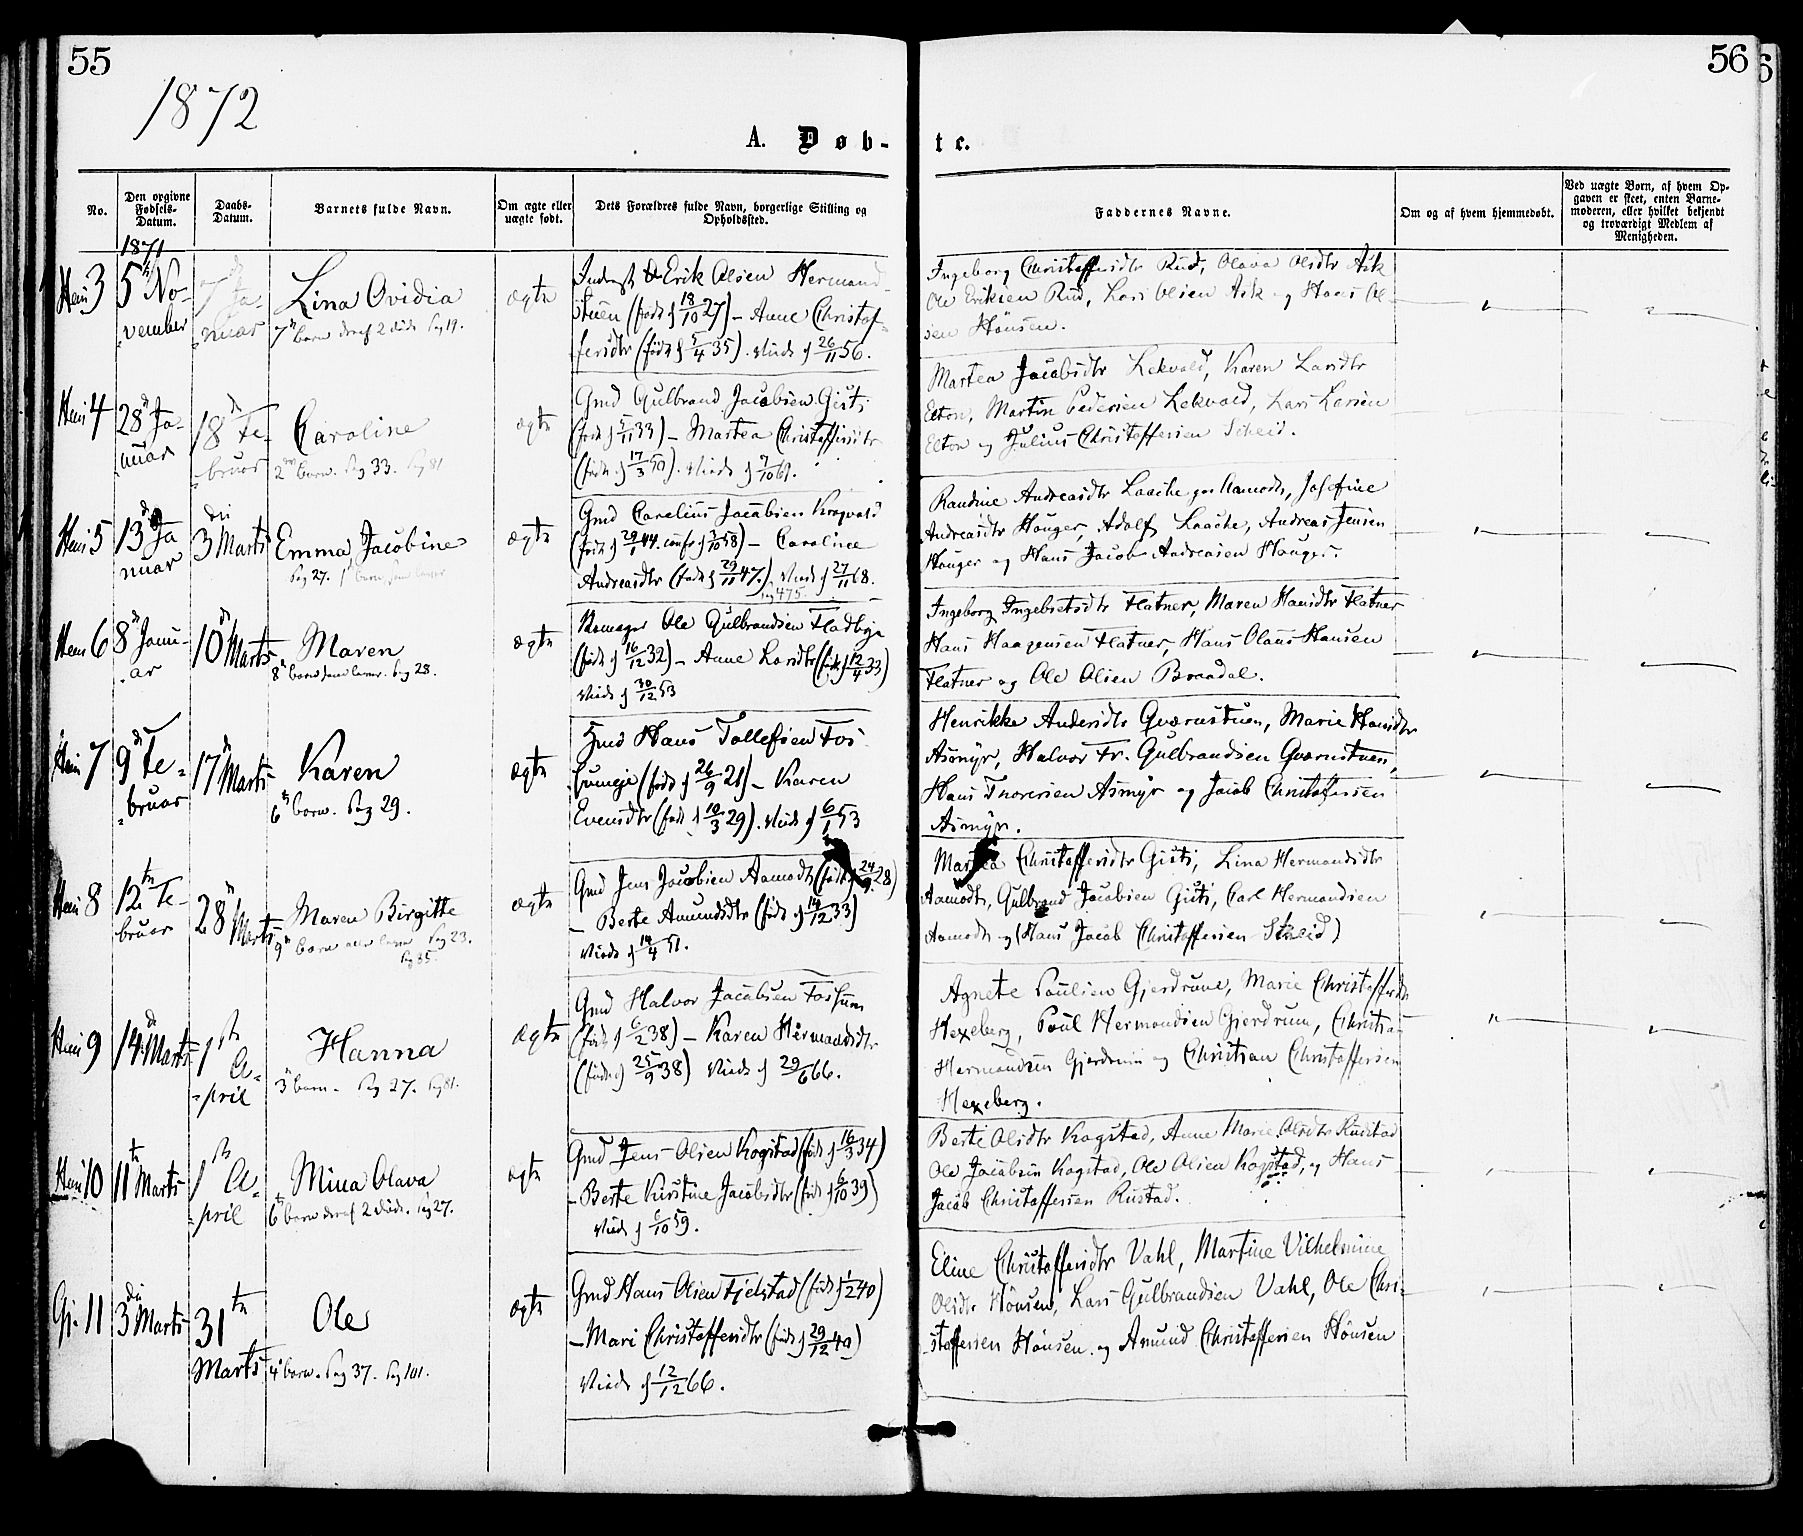 55
56
1872
A. Døb-
te.
No.
Den opgivne Fødsels-Datum.
Daabs-Datum.
Barnets fulde Navn.
Om ægte eller uægte født.
Dets Forældres fulde Navn, borgerlige Stilling og Opholdssted.
Faddernes Navne.
Om og af hvem hjemmedøbt.
Ved uægte Børn, af hvem Opgaven er skeet, enten Barnemoderen, eller hvilket bekjendt og troværdigt Medlem af Menigheden.
1871
3
5 No-
vember
7 Ja-
nuar
Lina Ovidia
7 barn deraf 2 døde. Pag 19.
ægte
Erik Olsen Hermand-
stuen (født 18/10 27) – Anne Christof-
fersdtr (født 5/4 35). Viede 26/11 56.
Ingeborg Christoffersdtr Rud, Olava Olsdtr Ask
Ole Eriksen Rud, Lars Olsen Ask og Hans Ol-
sen Hønsen.
4
28 Ja-
nuar
18 Fe-
bruar
Caroline
2 barn. Pag 33. Pag 81
ægte
Gmd Gulbrand Jacobsen
(født 5/11 33) – Martea Christoffersdtr
(født 17/3 ). Viede
Martea Jacobsdtr Lekvold, Karen Larsdtr
Elton, Martin Pedersen Lekvold, Lars Larsen
Elton og Julius Christoffersen
5
13 Ja
nuar
3 Marts
Emma Jacobine
Pag 27. 1 barn
ægte
Gmd Carelius Jacobsen
(født 29/1 44. conf 3/10 58) – Caroline
Andreasdtr (født 29/11 47.) Viede 27/11 68.
Pag 475.
Randine Andreasdtr Laache Aamodt, Josefine
Andreasdtr Hauger, Adolf Laache, Andreas Jensen
Hauger og Hans Jacob Andreasen Hauger.
6
8 Janu-
ar
10 Marts
Maren
8 barn Pag 28.
ægte
Skomager Ole Gulbrandsen Fladbye
(født 16/12 32) – Anne Larsdtr (født 12/4 33)
Viede 30/12 53
Ingeborg Ingebretsdtr Flatner, Maren Hansdtr Flatner
Hans Haagensen Flatner, Hans Olaus Hansen
Flatner og Ole Olsen Braadal.
7
9 Fe-
bruar
17 Marts
Karen
6 barn. Pag 29.
ægte
Hans Tollefsen Fos-
sumeje (født 26/9 21) – Karen
Evensdtr (født 10/3 29). Viede 6/1 53
Henrikke Andersdtr Qværnstuen, Marie Hansdtr
Asmyr, Halvor Fr. Gulbrandsen Qværnstuen,
Hans Thoresen Asmyr og Jacob Christoffersen
Asmyr.
8
12te Fe-
bruar
28 Marts
Maren Birgitte
9 barn Pag 23.
Pag 35.
ægte
Gmd Jens Jacobsen Aamodt (født 24/9 28)
– Berte Amundsdtr (født 14/12 33)
Viede 14/4 51.
Martea Christoffersdtr Gisti, Lina Hermandsdtr
Aamodt, Gulbrand Jacobsen Gisti, Carl Hermandsen
Aamodt og (Hans Jacob Christoffersen
9
14 Marts
1ste A-
pril
Hanna
3 barn. Pag 27. Pag 81.
ægte
Gmd Halvor Jacobsen Fossum
(født 6/2 38) – Karen Hermandsdtr
(født 25/9 38) Viede 29/6 66.
Agnete Poulsen Gjerdrum, Marie Christoffersdtr
Hexeberg, Poul Hermandsen Gjerdrum,
Hermandsen Gjerdrum og Christian Christoffersen
Hexeberg.
10
11te Marts
1ste A-
pril
Mina Olava
6 barn deraf 2 døde. Pag 27.
ægte
Gmd Jens Olsen Kogstad (født 16/3 34)
– Berte Kirstine Jacobsdtr (født 6/10 39)
Viede 6/10 59.
Berte Olsdtr Kogstad, Anne Marie Olsdtr Rustad
Ole Jacobsen Kogstad, Ole Olsen Kogstad, og Hans
Jacob Christoffersen Rustad.
Gj. 11
3 Marts
31te
Marts
Ole
4 barn. Pag 37. Pag 101.
ægte
Gmd Hans Olsen Fjelstad (født 1/2 40)
– Mari Christoffersdtr (født 29/12 40)
Viede 12/12 66.
Eline Christoffersdtr Vahl, Martine Vilhelmine
Olsdtr Hønsen, Lars Gulbrandsen Vahl, Ole Chri-
stoffersen Hønsen og Amund Christoffersen Hønsen